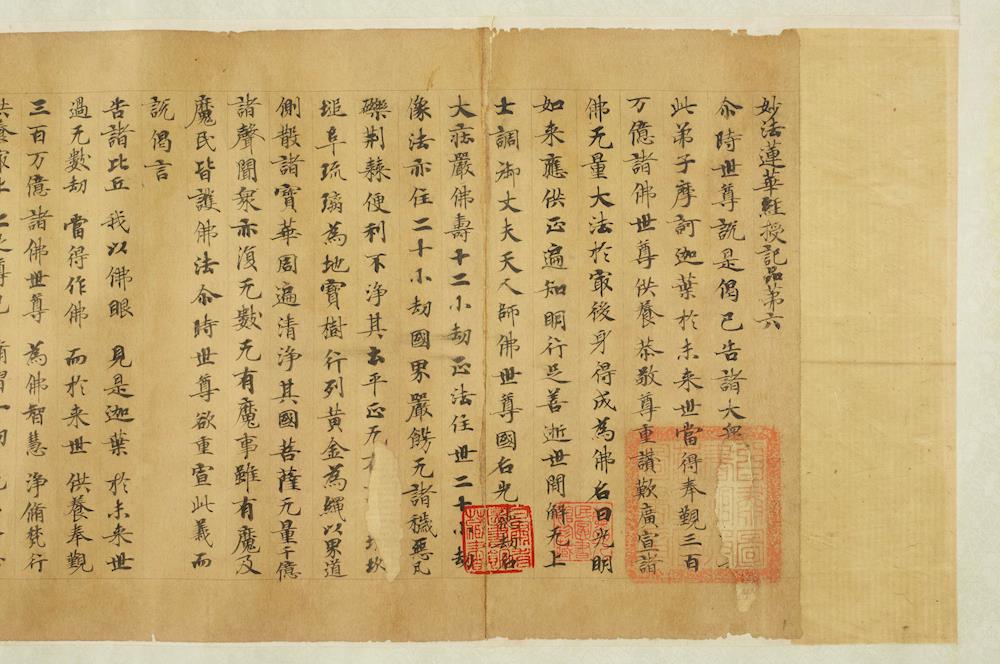 妙法蓮華經授記品第六
尒時世尊說是偈已告諸大衆
此弟子摩訶迦葉於未来世當得奉覲三百
万億諸佛世尊供養恭敬尊重讚歎廣宣諸
佛无量大法於最後身得成為佛名曰光明
如来應供正遍知明行足善逝世間解无上
士調御丈夫天人師佛世尊國名光劫名
大莊嚴佛壽十二小劫正法住世二十小劫
像法亦住二十小劫國界嚴餝无諸穢惡瓦
礫荊棘便利不淨其土平正无有坑坎
堆阜琉璃為地寶樹行列黃金為繩以界道
側散諸寶華周遍清淨其國菩薩无量千億
諸聲聞衆亦復无數无有魔事雖有魔及
魔民皆護佛法尒時世尊欲重宣此義而
說偈言
告諸比丘 我以佛眼 見是迦葉 於未来世
過无數劫 當得作佛 而於来世 供養奉覲
三百万億 諸佛世尊 為佛智慧 淨脩梵行